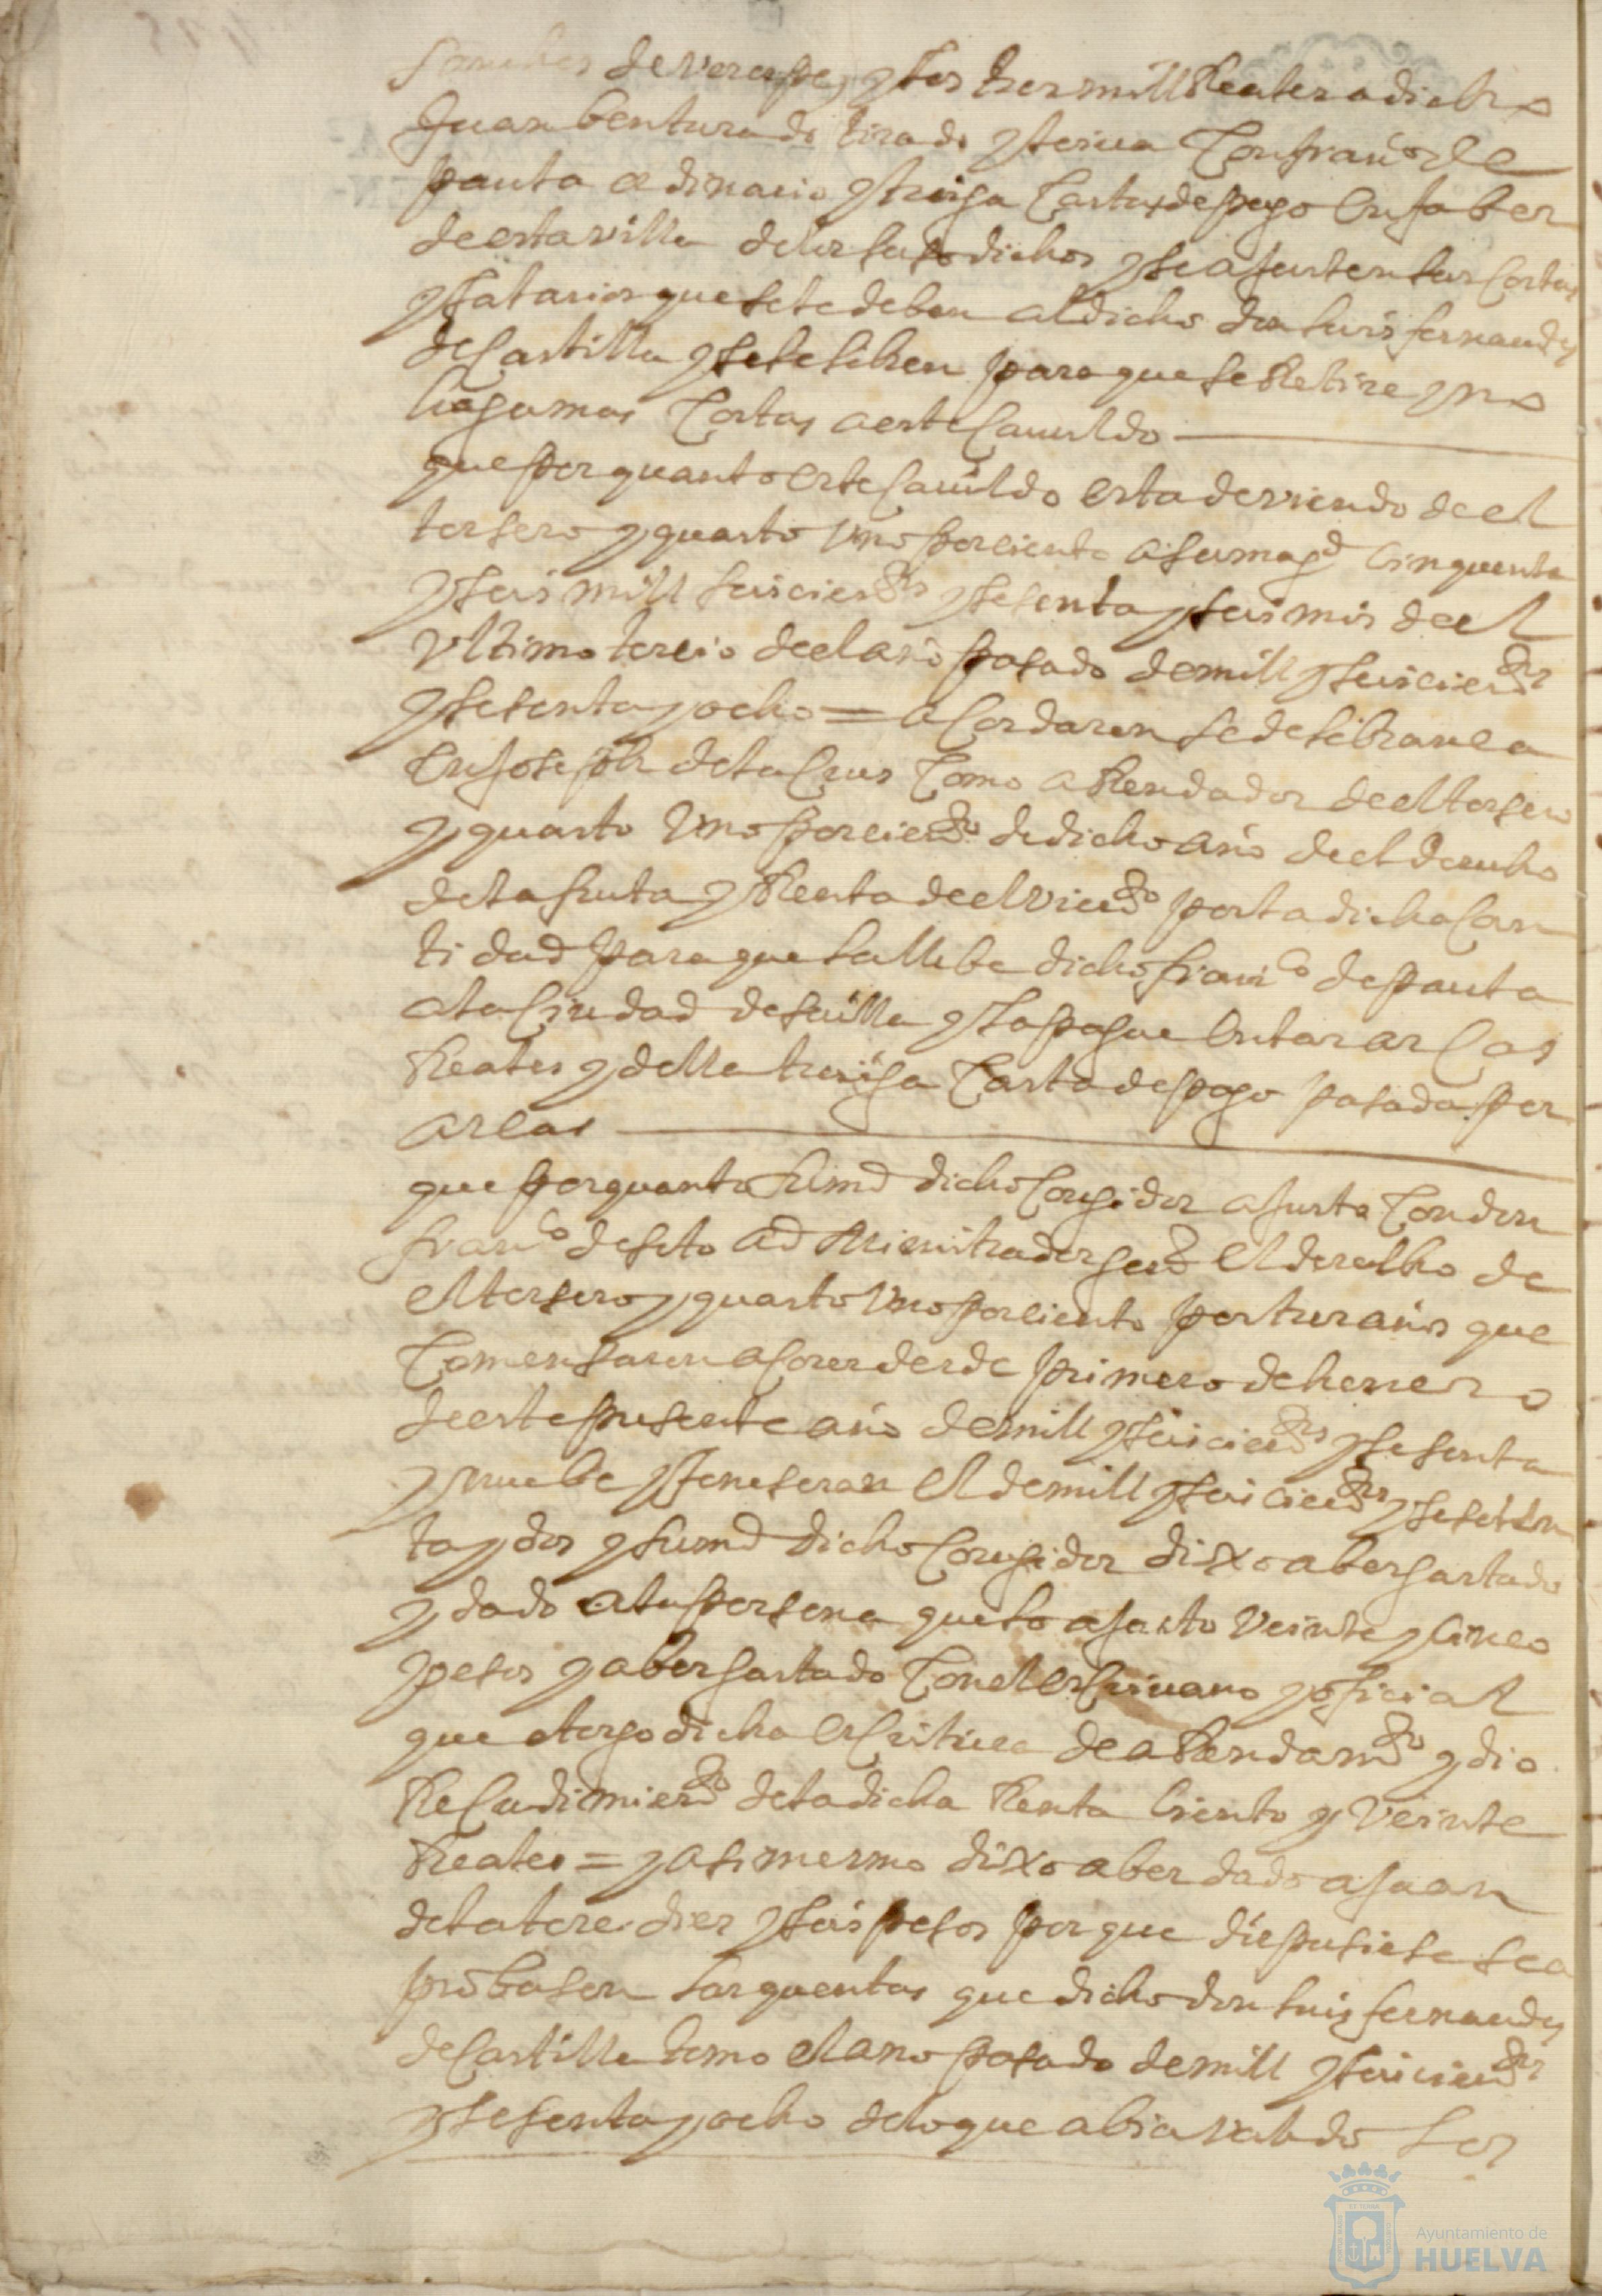 de veraspe, y los tres mill Reales a dicho
Juan bentura do tirado y serua Con franco de
pauta ordinario y traiga Cartas de pago en fabor
de esta villa de los susodichos y se ajusten las Costas
y salarios que se le deben al dicho don luis fernandes
de Castilla y se le libren para que se Retire y no
haga mas Costas a este Cauildo
que por quanto este Cauildo esta deviendo de el
tersero y quarto vno por ciento a su magd cinquenta
y seis mill seiscientos y sesenta y seis mrs de el
vltimo tercio de el año pasado de mill y seiscientos
y sesenta y ocho = acordaron se de libransa
en Joseph de la Crus Como aRendador de el tersero
y quarto vno por ciento de dicho año de el derecho
de la fruta y Renta de el viento por la dicha Can
tidad para que la llebe dicho franco de pauta
a la Ciudad de seuilla y la pague en las arcas
Reales y de ella traiga Carta de pago pasada por
arcas
que por quanto su md dicho Coregidor ajusto Con don
franco de soto administrador genl el derecho de
el tersero y quarto vno por ciento por tres años que
Comensaron a Corer desde primero de henero
de este presente año de mill y seiscientos y sesenta
y nuebe y feneseran el de mill y seiscientos y seten
ta y dos y su md dicho Coregidor dixo aber gastado
y dado a la persona que lo ajusto veinte y cinco
pesos y aber gastado Con el escriuano y oficial
que otorgo dicha escritura de aRendamto y dio
Recudimiento de la dicha Renta ciento y veinte
Reales = y asi mesmo dixo aber dado a Juan
de la tore dies y seis pesos por que dispusiese se a
probasen las quentas que dicho don luis fernandes
de Castilla tomo el año pasado de mill y seiscientos
y sesenta y ocho de lo que abia valido los
Ayuntamiento de
HUELVA